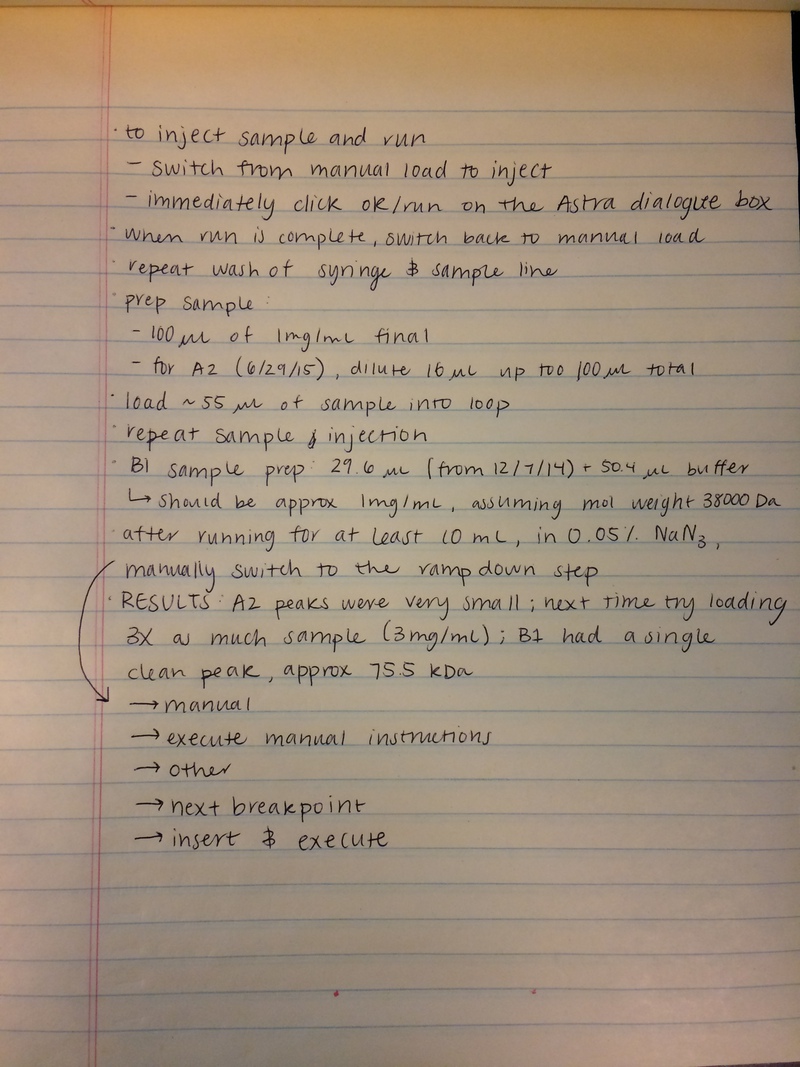 · to inject sample and run
- switch from manual load to inject
- immediately click ok/run on the Astra dialogue box
· when run is complete, switch back to manual load
· repeat wash of syringe & sample line
· prep sample:
- 100 μL of 1mg/mL final
- for A2 (6/29/15), dilute 16 μL up too 100 μL total
· load ~55 μL of sample into loop
· repeat sample injection
· B1 sample prep: 29.6 μL (from 12/7/14) + 50.4 μL buffer
↳ should be approx 1mg/mL, assuming mol weight 38000 Da
· after running for at least 10 mL, in 0.05% NaN₃,
manually switch to the ramp down step
· RESULTS: A2 peaks were very small; next time try loading
3X as much sample (3mg/mL); B1 had a single
clean peak, approx 75.5 kDa
→ manual
→ execute manual instructions
→ other
→ next breakpoint
→ insert & execute